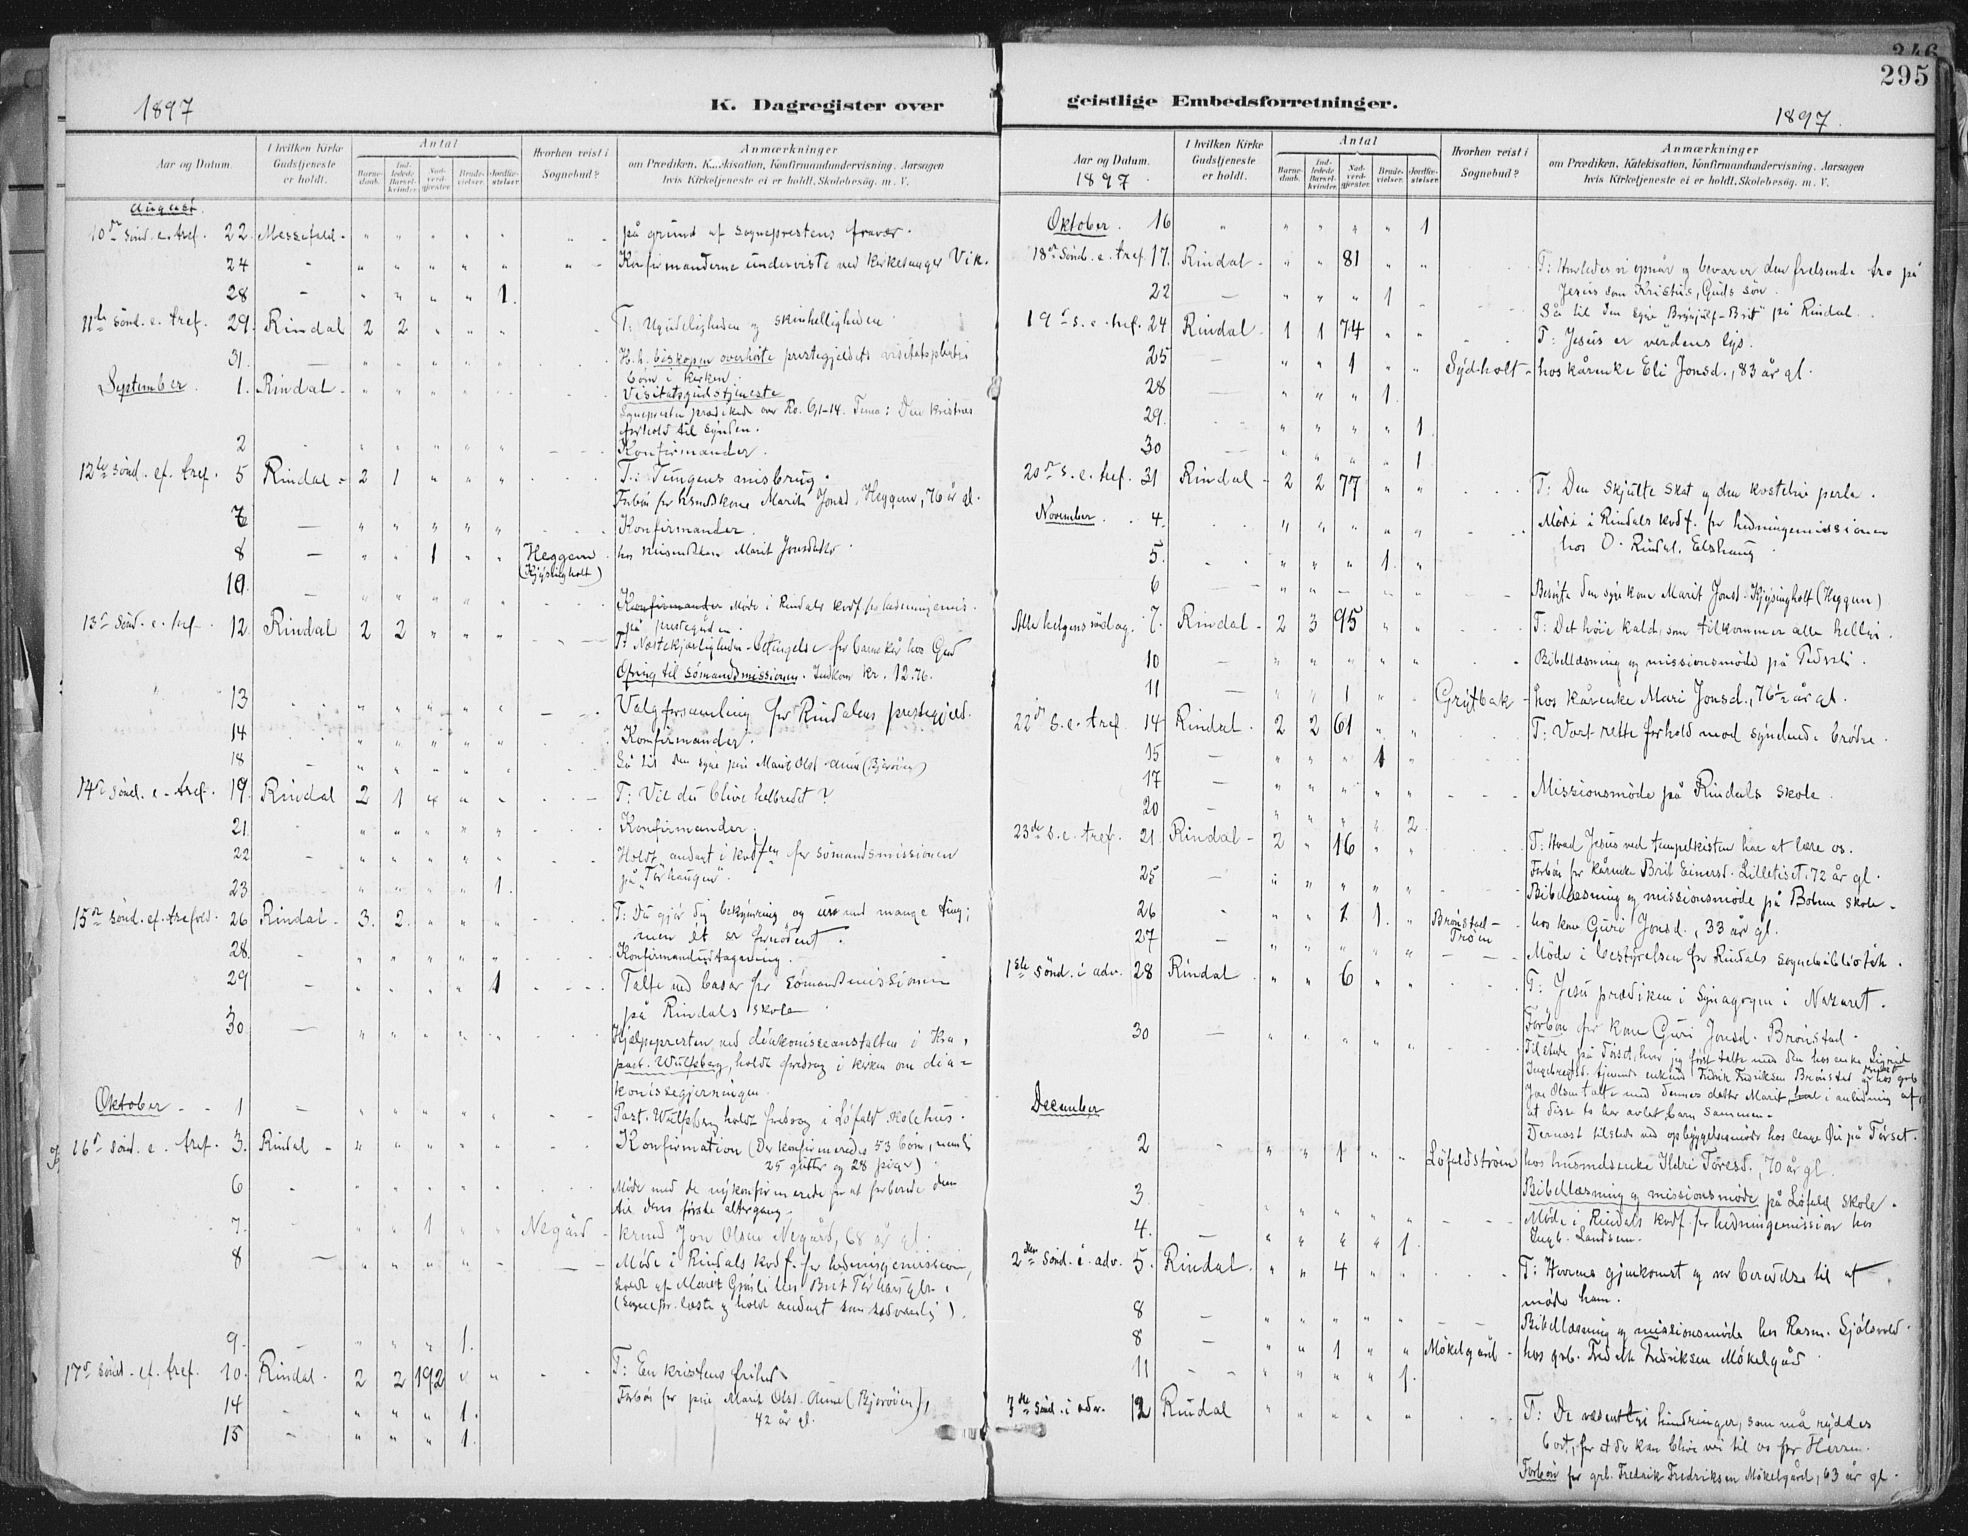 346
295
1897
K. Dagregister over
geistlige Embedsforretninger.
1897.
Aar og Datum
I hvilken Kirke Gudstjeneste er holdt.
Antal
Barnedaab.
Indledede Barselkvinder.
Nadverdgjester.
Brudevielser.
Jordfæstelser.
Hvorhen reist i Sognebud?
Anmærkninger
om Prædiken, Katekisation, Konfirmandundervisning, Aarsagen
hvis Kirketjeneste ei er holdt, Skolebesøg. m. V.
August.
10de Sönd. e. tref. 22. Messefald - på grund af sogneprestens fravær.
24 - Konfirmanderne underviste ved kirkesanger Vik.
28 - 1.
11te Sönd. e. tref. 29. Rindal 2 2 T: Ugudeligheden og skinhelligheden
31. - H.h. biskopen overhörte prestegjeldets visitatspligtige
börn i kirken.
September. 1. Rindal - Visitatsgudstjeneste
Sognepresten prædikede over Ro. 6,1-14. Tema: Den kristnes
forhold til synden.
2 Konfirmander.
12te Sönd. ef. tref. 5 Rindal - 2 1 T: Tungens misbrug.
Forbön for Marit Jonsd. Heggem, 76 år gl.
7 - Konfirmander.
8 - 1 Heggem hos Marit Jonsdatter.
(Kjysingholt)
10. - Konfirmander Möde i Rindals kvdf. for hedningemis.
på prestegården.
13de Sönd. e. tref. 12. Rindal 2 2 T: Næstekjærligheden - betingelse for barnekår hos Gud
Ofring til Sömandsmissionen. Indkom kr. 12.76.
13 Valgforsamling for Rindalens prestegjeld.
14 Konfirmander.
18 - Så til den syge pige Marit Olsd. Aune (Bjøröien)
14de Sönd. e. tref. 19. Rindal 2 1 T: Vil du blive helbredet?
21. Konfirmander.
22 - Holdt andagt i kvdf.en for sömandsmissionen
på "Torhaugen".
23 - 1.
15de Sönd. ef. trefold. 26 Rindal - 3. 2. T: Du gjör dig bekymring og uro med mange ting;
men ét er fornödent.
28. - Konfirmandudtagning.
29 - 1 Talte ved basar for Sömandsmissionen
på Rindals skole
30 - Hjælpepresten ved diakonisseanstalten i Kra,
past. Wulfsberg, holdt foredrag i kirken om dia-
konissegjerningen.
Oktober - 1 - Past. Wulfsberg holdt foredrag i Löfald skolehus.
16de Sönd. e. tref. 3. Rindal - Konfirmation (Der konfirmeredes 53 börn, nemlig
25 gutter og 28 piger)
6 - Möde med de nykonfirmerede for at forberede dem
til deres förste altergang.
7. 1 Negård - Jon Olsen Negård, 68 år gl.
8 - Möde i Rindals kvdf. for hedningemission,
holdt af Marit hos Brit
(Sognepr. læste og holdt andagt som sædvanlig).
9. - 1.
17de Sönd. ef. tref. 10. Rindal - 2 2 192 T: En kristens frihed.
Forbön for pige Marit Olsd. Aune (Bjøröien),
42 år gl.
14 - 1.
15 - 1.
Aar og Datum.
1897
I hvilken Kirke Gudstjeneste er holdt.
Antal
Barnedaab.
Indledede Barselkvinder.
Nadverdgjester.
Brudevielser.
Jordfæstelser.
Hvorhen reist i Sognebud?
Anmærkninger
om Prædiken, Katekisation, Konfirmandundervisning, Aarsagen
hvis Kirketjeneste ei er holdt, Skolebesøg. m. V.
Oktober. 16 1
18de Sönd. e. tref. 17. Rindal - 81 T: Hvorledes vi opnår og bevarer den frelsende tro på
Jesus som Kristus, Guds sön.
22 - 1 Så til den syge Brynjulf-Brit på Rindal.
19de S. e. tref. 24 Rindal - 1 1 74 T: Jesus er verdens lys.
25 - 1 Sydholt - hos kårenke Eli Jonsd., 83 år gl.
28 - 1.
29. 1.
30 1
20de S. e. tref. 31 Rindal - 2 2 77 T: Den skjulte skat og den kostelige perle.
November. 4. Möde i Rindals kvdf. for hedningemissionen
hos O. Rindal, Elshaug
5. 1.
6 Besögte den syge kone Marit Jonsd. Kjysingholt (Heggem)
Allehelgensdag. 7. Rindal - 2 3 95 T: Det höie kald, som tilkommer alle hellige.
10 - Bibellæsning og missionsmöde på
11 - 1 Grytbak - hos kårenke Mari Jonsd., 76½ år gl.
22de S. e. tref. 14 Rindal. 2 2 61 T: Vort rette forhold mod syndende brödre.
15 - 1
17 - Missionsmöde på Rindals skole.
20 - 2.
23de S. e. tref. 21 Rindal - 2 16 T: Hvad Jesus ved tempelkisten har at lære os.
Forbön for kårenke Brit Einersd. Lilletiset, 72 år gl.
25 - Bibellæsning og missionsmöde på Bolme skole.
26 - 1 1. Brönstad- hos kone Guri Jonsd., 33 år gl.
Tröen
27 - Möde i bestyrelsen for Rindals sognebibliotek.
1ste Sönd. i adv. 28 Rindal 6 T: Jesu prædiken i Synagogen i Nazaret.
Forbön for kone Guri Jonsd. Brönstad.
30 - Tilstede på Törset, hvor jeg först talte med den hos enke Sigrid
Ingebregtsd. tjenende enkemd. Fredrik Fredriksen Brönstad og hos grb.
Jon Olsen talte med dennes datter Marit i anledning af,
at disse to har avlet barn sammen.
December
Dernæst tilstede ved opbyggelsesmöde hos på Törset.
2 1 Löfaldströen hos husmdsenke Ildri Toresd., 70 år gl.
3. - Bibellæsning og missionsmöde på Löfald skole.
4. - 1. Möde i Rindals kvdf. for hedningemission hos
Ingb. Landsem.
2den Sönd. i adv. 5. Rindal. 4 T: Herrens gjenkomst og vor beredelse til at
möde ham.
8 - Bibellæsning og missionsmöde hos Rasm. Sjölsvold.
8 - 1 Mökelgård - hos grb. Fredrik Fredriksen Mökelgård
11 - 1.
3die Sönd. i adv. 12 Rindal T: De væsentlige hindringer, som må ryddes
bort, for at der kan blive vei til os for Herren.
Forbön for grb. Fredrik Fredriksen Mökelgård, 63 år gl.